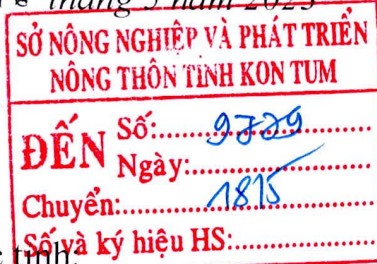 tháng 5 năm 2023
SỞ NÔNG NGHIỆP VÀ PHÁT TRIỂN
NÔNG THÔN TỈNH KON TUM
ĐẾN
Số:.......9729..........
Ngày:........................
Chuyển:..........18/5..........
Số và ký hiệu HS:..................
tỉnh: